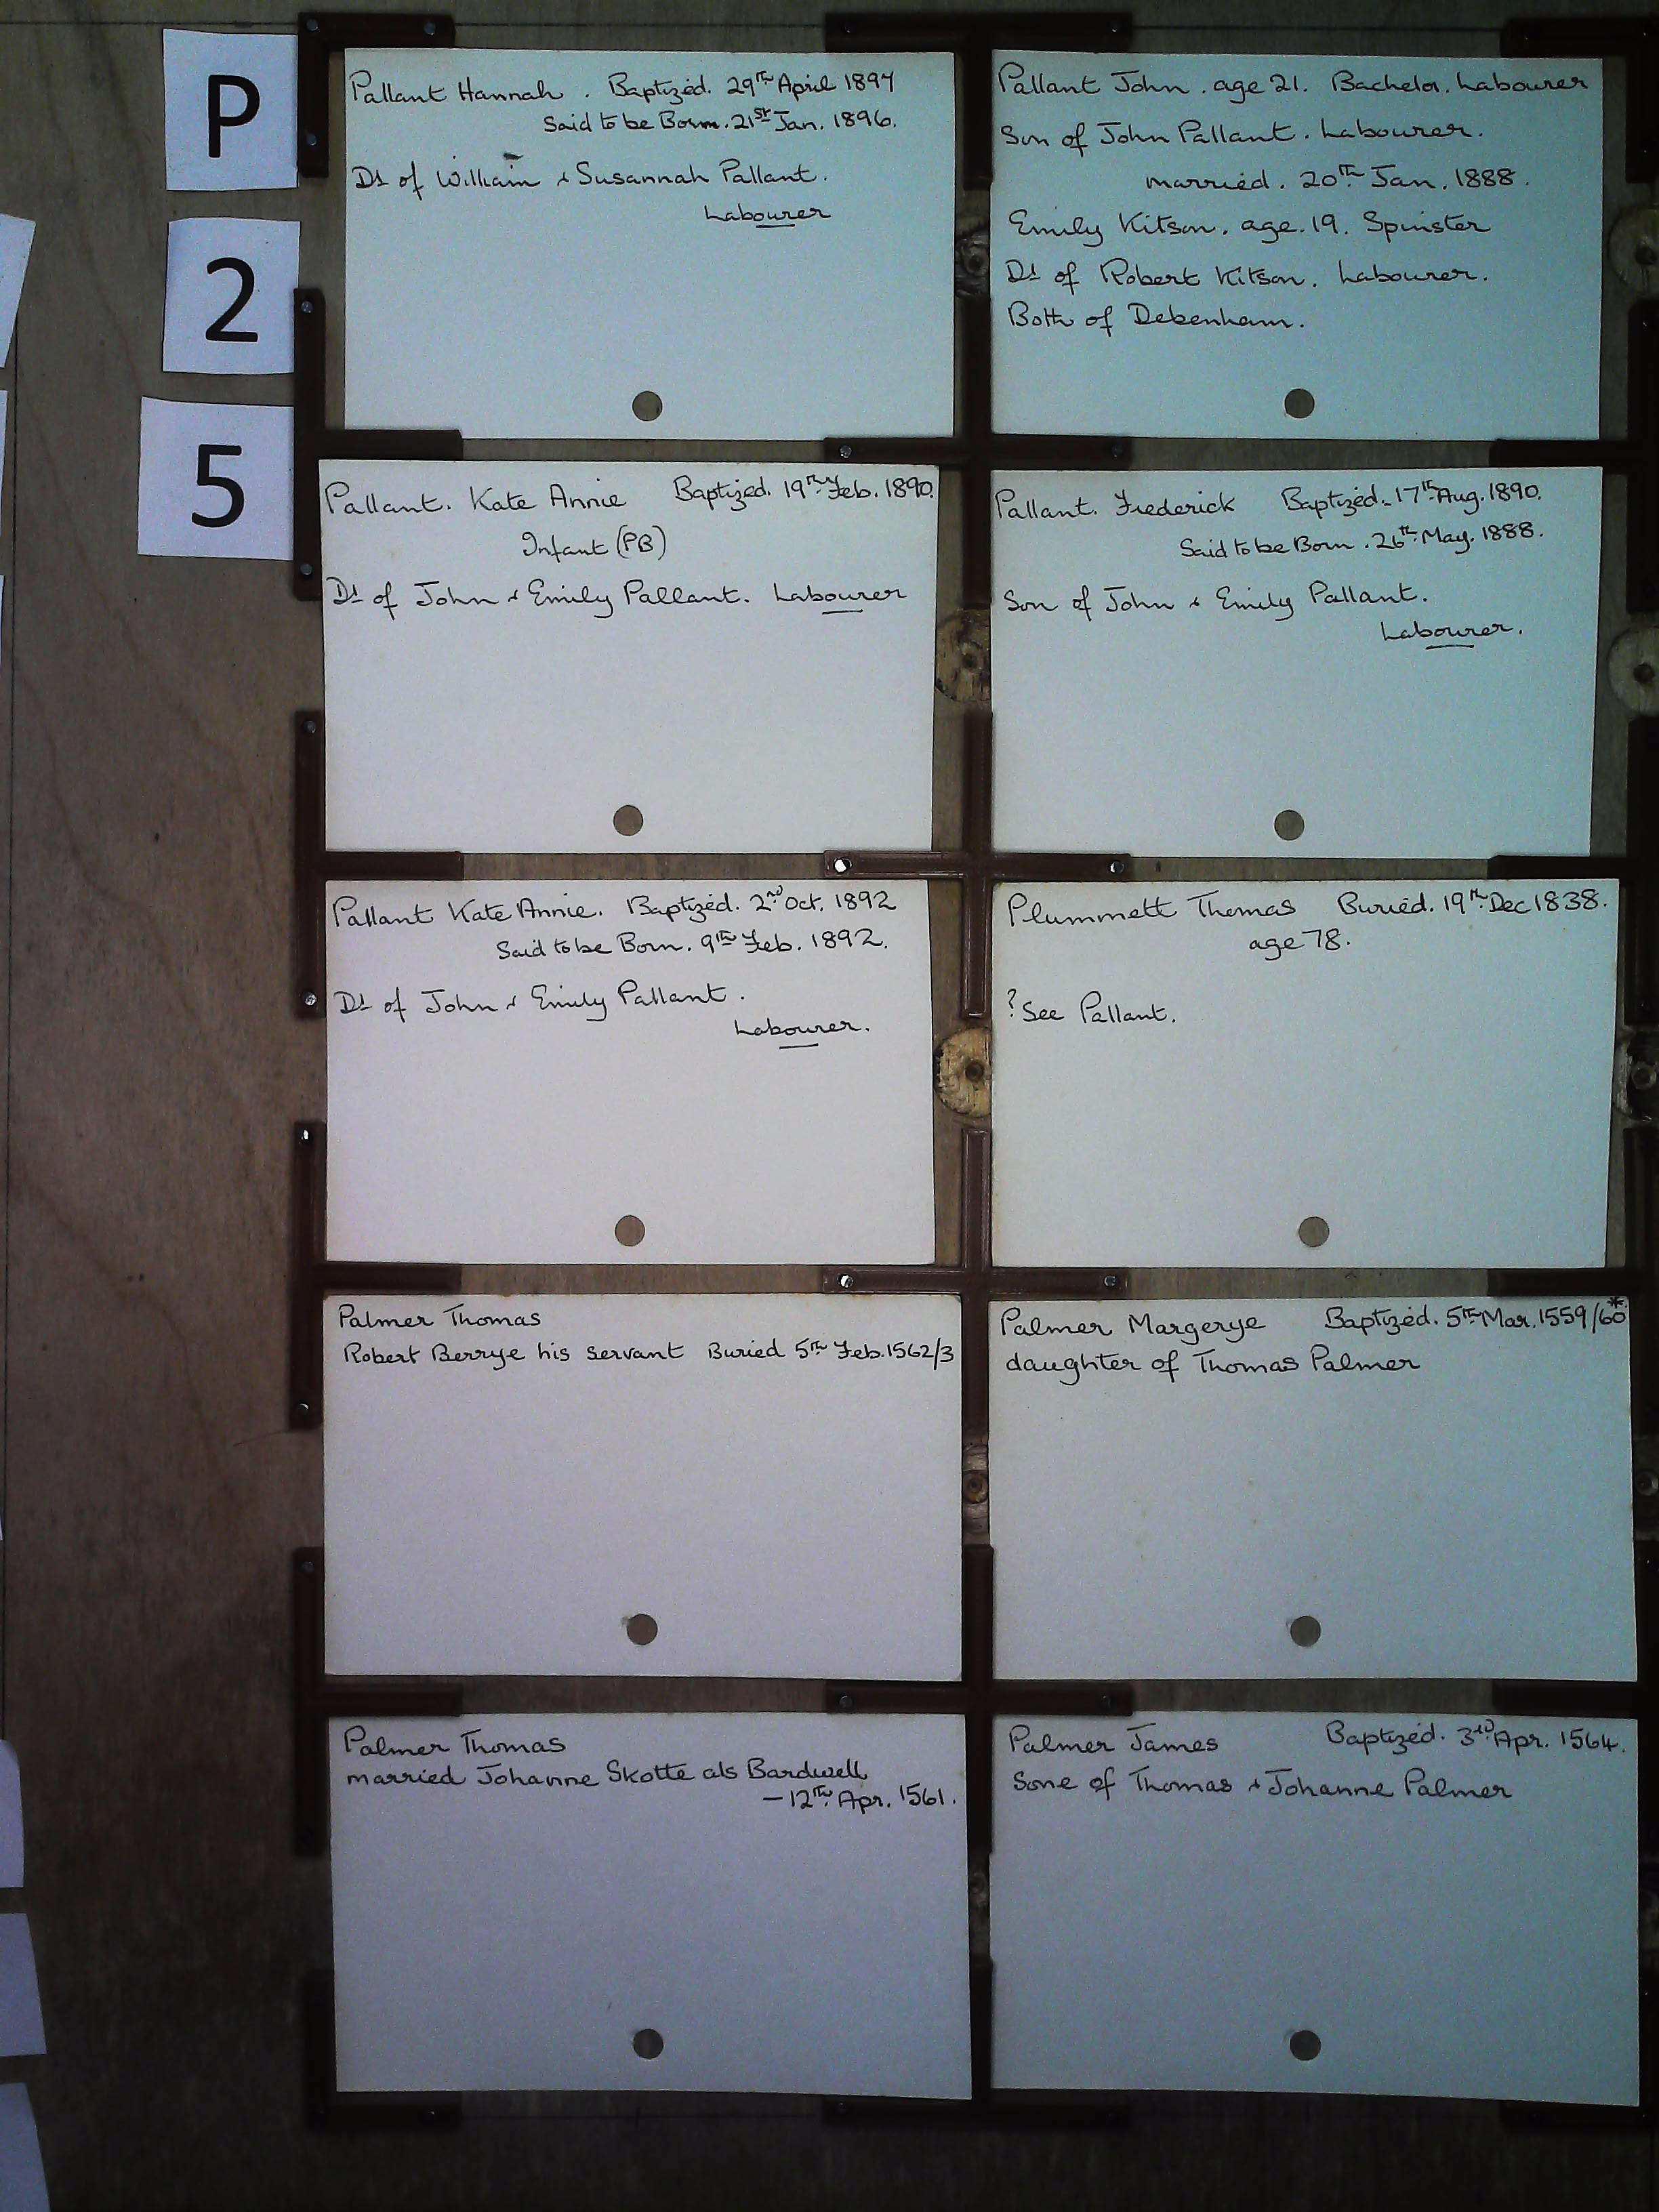 P
2
5
Pallant Hannah . Baptized. 29th April 1897
Said to be Born. 21st Jan. 1896.
Dt of William & Susannah Pallant.
Labourer
Pallant John . age 21. Bachelor. Labourer
Son of John Pallant. Labourer.
married. 20th Jan. 1888.
Emily Kitson. age. 19. Spinster
Dt of Robert Kitson. Labourer.
Both of Debenham.
Pallant. Kate Annie Baptized. 19th Feb. 1890.
Infant (PB)
Dt of John & Emily Pallant. Labourer
Pallant. Frederick Baptized. 17th Aug. 1890.
Said to be Born. 26th May. 1888.
Son of John & Emily Pallant.
Labourer.
Pallant Kate Annie. Baptized. 2nd Oct. 1892
Said to be Born. 9th Feb. 1892.
Dt of John & Emily Pallant.
Labourer.
Plummett Thomas Buried. 19th Dec 1838.
age 78.
? See Pallant.
Palmer Thomas
Robert Berrye his servant Buried 5th Feb. 1562/3
Palmer Margerye Baptized. 5th Mar. 1559/60*
daughter of Thomas Palmer
Palmer Thomas
married Johanne Skotte als Bardwell
- 12th Apr. 1561.
Palmer James Baptized. 3rd Apr. 1564.
Sone of Thomas & Johanne Palmer